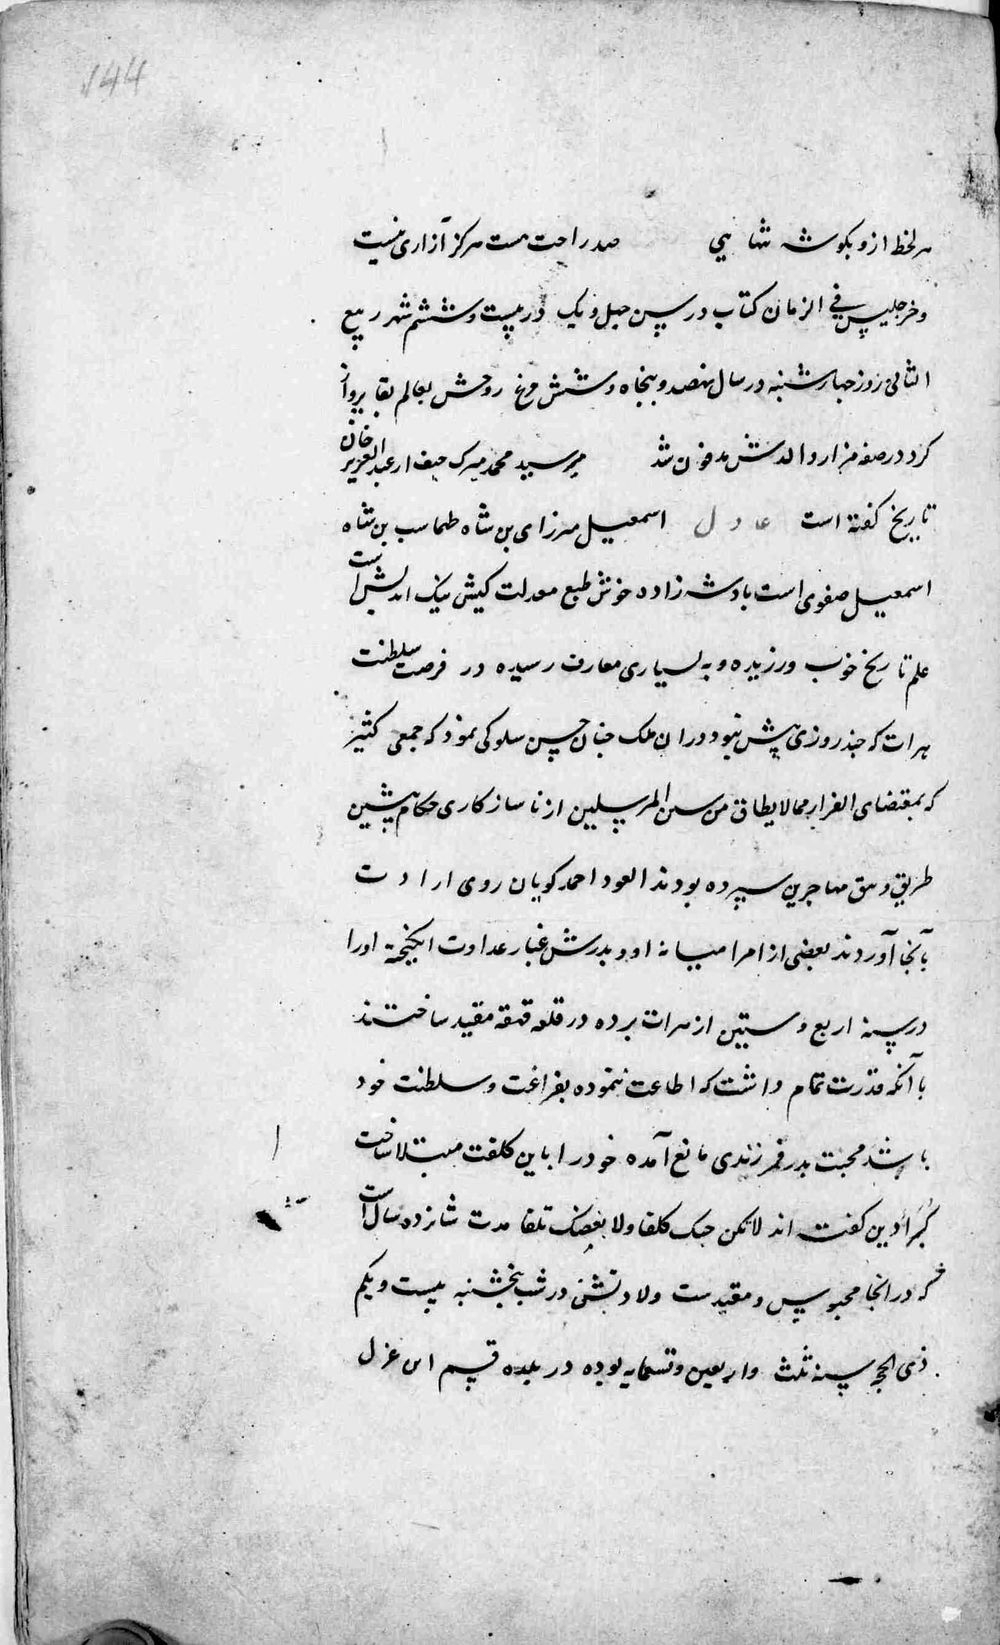 ۱۴۴
هر لحظ ازو بکوشه شاهی صد راحت هست هرکز آزاری نیست
و خر جلیس فی الزمان کتاب در سن چهل و یک در بیست و ششم شهر ربیع
الثانی روز چهارشنبه در سال نهصد و پنجاه و شش مرغ روحش بعالم بقا پرواز
کرد در صفه مزار والدش مدفون شد میر سید محمد میرک حیف از عبدالعزیز خان
تاریخ کفته است عادل اسمعیل میرزای بن شاه طهماسب بن شاه
اسمعیل صفوی است بادشه زاده خوش طبع معدلت کیش نیک اندیش است
علم تاریخ خوب ورزیده و به بسیاری معارف رسیده در فرصت سلطنت
هرات که چند روزی بیش نبود در ان ملک چنان حسن سلوکی نمود که جمعی کثیر
که بمقتضای الفرار مما لا یطاق من سنن المرسلین از ناسازکاری حکام پیشین
طریق مهاجرین سپرده بودند العود احمد کویان روی ارادت
بآنجا آوردند بعضی از امرا میانه او و پدرش غبار عداوت انکیخته اورا
در سنه اربع و ستین از هرات برده در قلعه قهقه مقید ساختند
با آنکه قدرت تمام داشت که اطاعت ننموده بفراغت و سلطنت خود
باشد محبت پدر فرزندی مانع آمده خود را باین کلفت مبتلا ساخت
کبرا دین کفته اند لا تکن حبک کلفا ولا بغضک تلفا مدت شانزده سال است
که در انجا محبوس و مقیدست ولادتش در شب پنجشنبه بیست و یکم
ذی الحجه سنه ثلث و اربعین و تسعمایه بوده در بلده قم این غزل